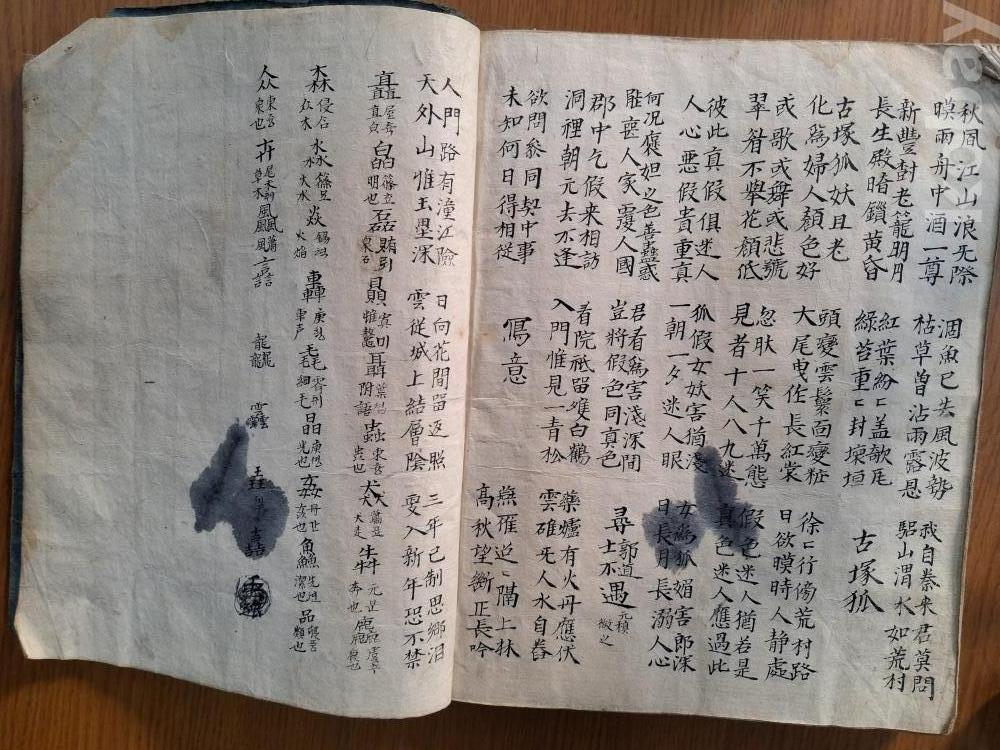 秋風江山浪无際
暝雨舟中酒一尊
涸魚已去風波勢
枯草曾沾雨露恩
我自秦来君莫問
驪山渭水如荒村
新豐尌老籠明月
長生殿暗鎖黄昏
紅葉紛〻盖欹瓦
綠苔重〻封壊垣
古塚狐
古塚狐妖且老
化爲婦人顔色好
頭變雲鬟面變粧
大尾曳作長紅裳
徐〻行傍荒村路
日欲暝時人静處
或歌或舞或悲號
翠眉不擧花顔低
忽肰一笑千萬態
見者十人八九迷
假色迷人猶若是
真色迷人應過此
彼此真假俱迷人
人心惡假貴重真
狐假女妖害猶淺
一朝一夕迷人眼
女爲狐媚害郎深
日長月長溺人心
何况褒妲之色善蠱惑
能喪人家覆人國
君看爲害淺深間
豈將假色同真色
尋郭道士不遇 元稹微之
郡中乞假来相訪
洞裡朝元去不逢
看院祇留雙白鶴
入門惟見一青松
藥爐有火丹應伏
雲碓无人水自舂
欲問參同契中事
未知何日得相從
寫意
燕雁迢〻隔上林
高秋望斷正長吟
人門路有潼江險
天外山惟玉壘深
日向花間留返照
雲從城上結層陰
三年已制思鄉泪
更入新年恐不禁
矗 屋音 直皃 皛 明也 磊 衆石 贔 聶 附語 蟲 東音 猋 犬走 犇 奔也 麤
森 众木 淼 大水 焱 火焰 轟 車声 毳 細毛 晶 光也 姦 鱻 潔也 品 類也
众 東音 衆也 卉 草木 飍 譶 龘 靐 垚 嚞